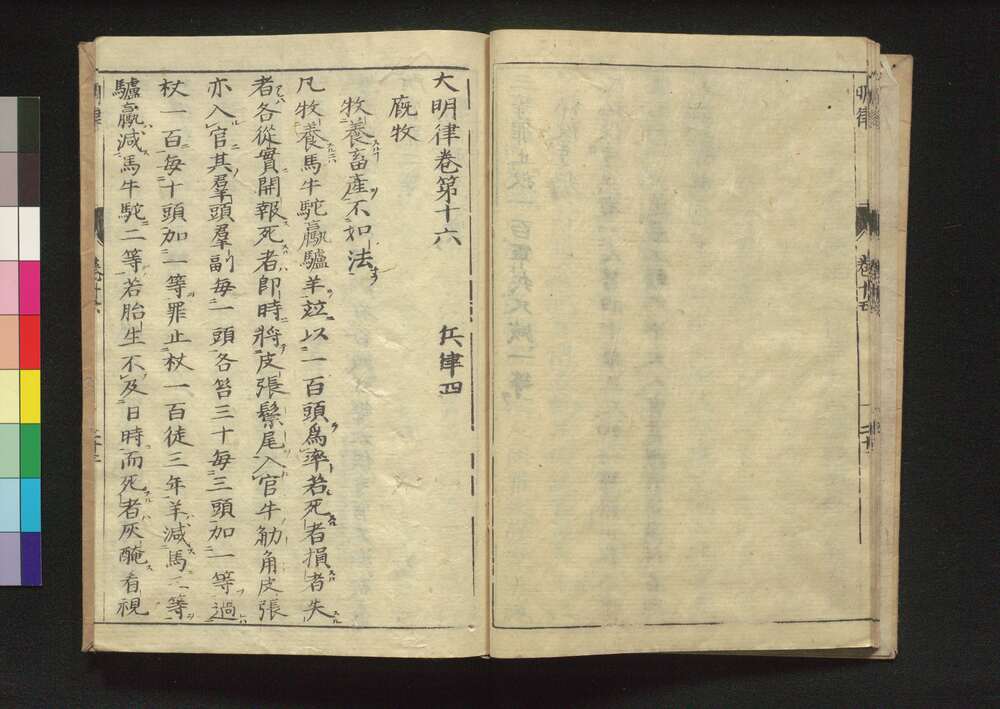 大明律卷第十六 兵律四
廐牧
牧養畜產不如法
凡牧養馬牛駝驘驢羊竝以一百頭爲率若死者損者失
者各從實開報死者即時將皮張鬃尾入官牛觔角皮張
亦入官其羣頭羣副每一頭各笞三十每三頭加一等過
杖一百每十頭加一等罪止杖一百徒三年羊減馬三等
驢驘減馬牛駝二等若胎生不及日時而死者灰醃看視
明律
卷十五